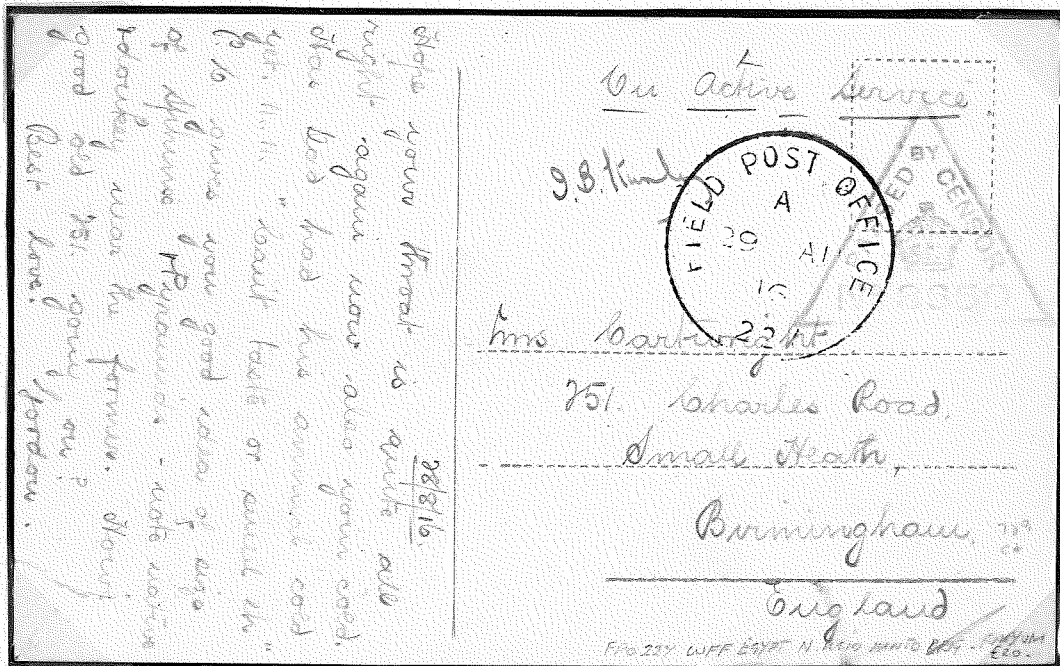 28/8/16.
Hope your throat is quite all
right again now also your cold.
Has Dad had his annual cold
yet. H.H. "Can't taste or smell etc"
P.C. gives you good idea of size
of Sphinx & Pyramids - note native
donkey near the former. How's
good old 251. going on?
Best love. Gordon.
On Active Service
FIELD POST OFFICE
A
29 AU
16
221
PASSED BY CENSOR
Mrs Cartwright
251. Charles Road,
Small Heath,
Birmingham,
England
EGYPT
£20.